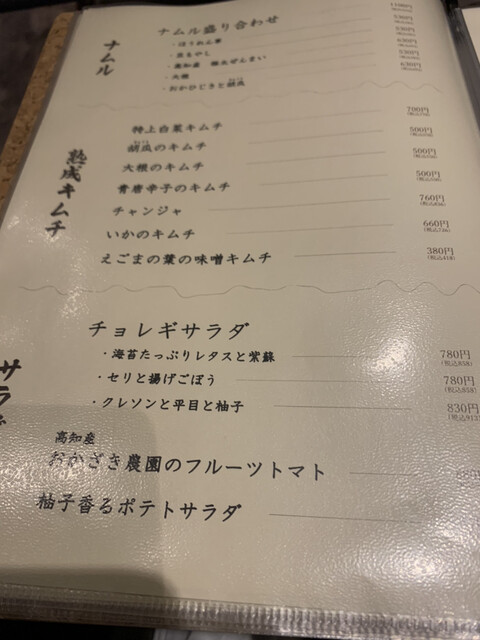 ナムル
ナムル盛り合わせ 1100円
・ほうれん草 530円
・豆もやし 530円
・高知産 極太ぜんまい 630円
・大根 530円
・おかひじきと胡瓜 630円
熟成キムチ
特上白菜キムチ 700円
胡瓜のキムチ 500円
大根のキムチ 500円
青唐辛子のキムチ 500円
チャンジャ 760円
いかのキムチ 660円
えごまの葉の味噌キムチ 380円 (税込418)
サラダ
チョレギサラダ
・海苔たっぷりレタスと紫蘇 780円 (税込858)
・セリと揚げごぼう 780円 (税込858)
・クレソンと平目と柚子 830円 (税込913)
高知産
おかざき農園のフルーツトマト
柚子香るポテトサラダ